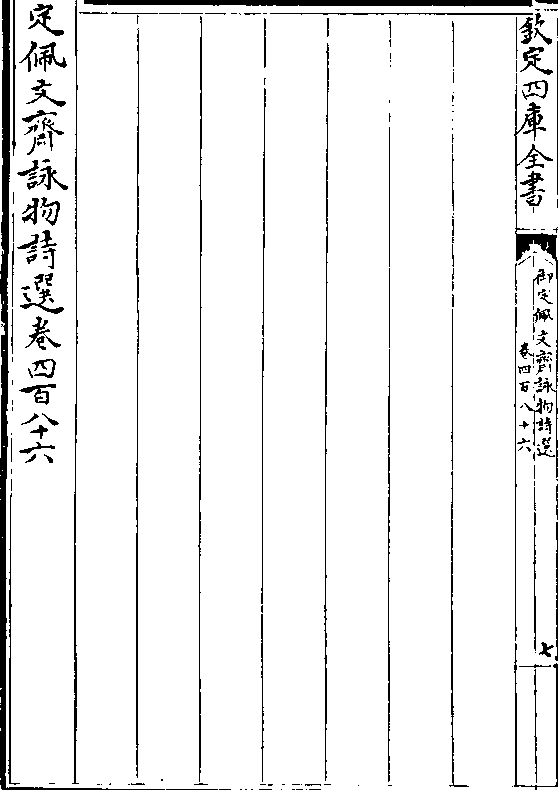 欽定四庫全書
御定佩文齋詠物詩選
卷四百八十六
七
定佩文齋詠物詩選卷四百八十六